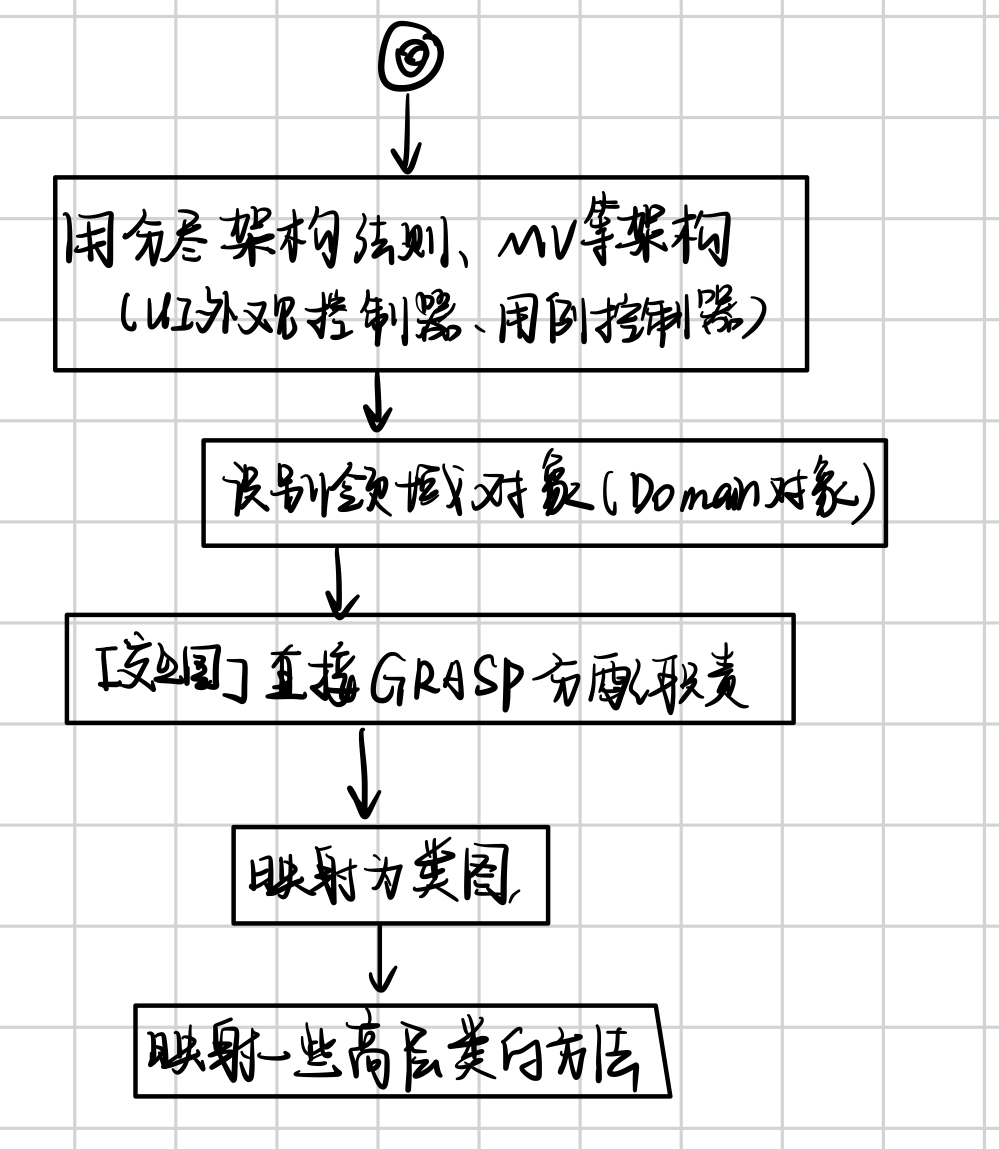 用分层架构法则、MV等架构
(UI外观控制器、用例控制器)
识别领域对象(Domain对象)
[交互图]直接GRASP分配职责
映射为类图
映射一些高层类的方法